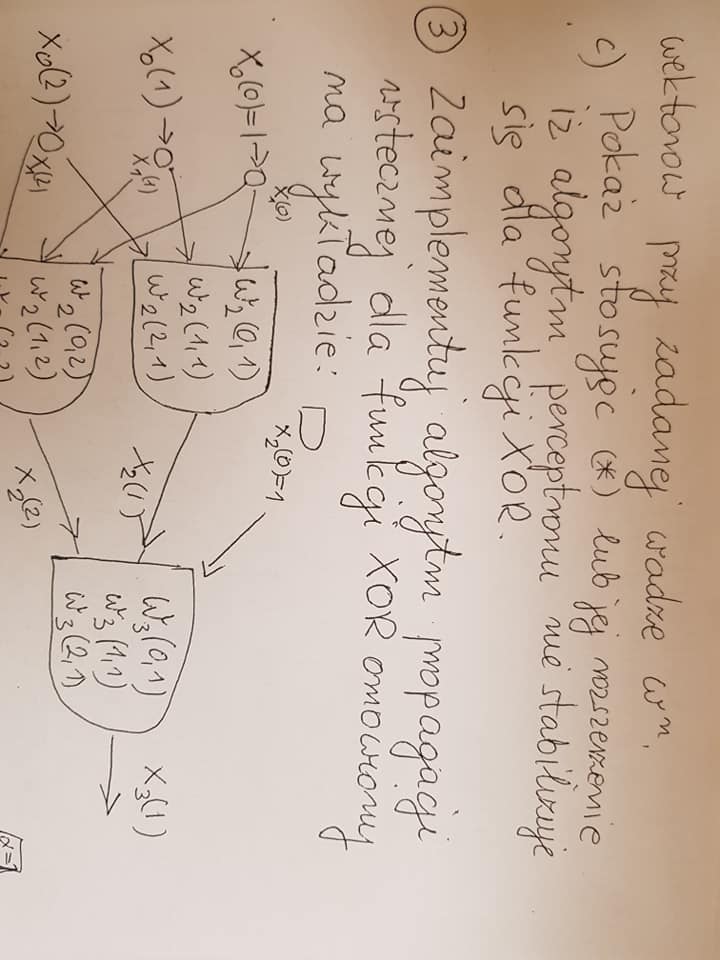 wektorow przy zadanej wadze wⁿ.
c) Pokaż stosując (*) lub jej rozszerzenie
iż algorytm perceptronu nie stabilizuje
się dla funkcji XOR.
③ Zaimplementuj algorytm propagacji
wstecznej dla funkcji XOR omowiony
na wykładzie:
x₁(0)
x₂(0)=1
x₀(0)=1→
w₂(0,1)
w₂(1,1)
w₂(2,1)
x₀(1)→
x₁(1)
x₂(1)
w₃(0,1)
w₃(1,1)
w₃(2,1)
x₃(1)
x₀(2)→
x₁(2)
w₂(0,2)
w₂(1,2)
w₂(2,2)
x₂(2)
α=1